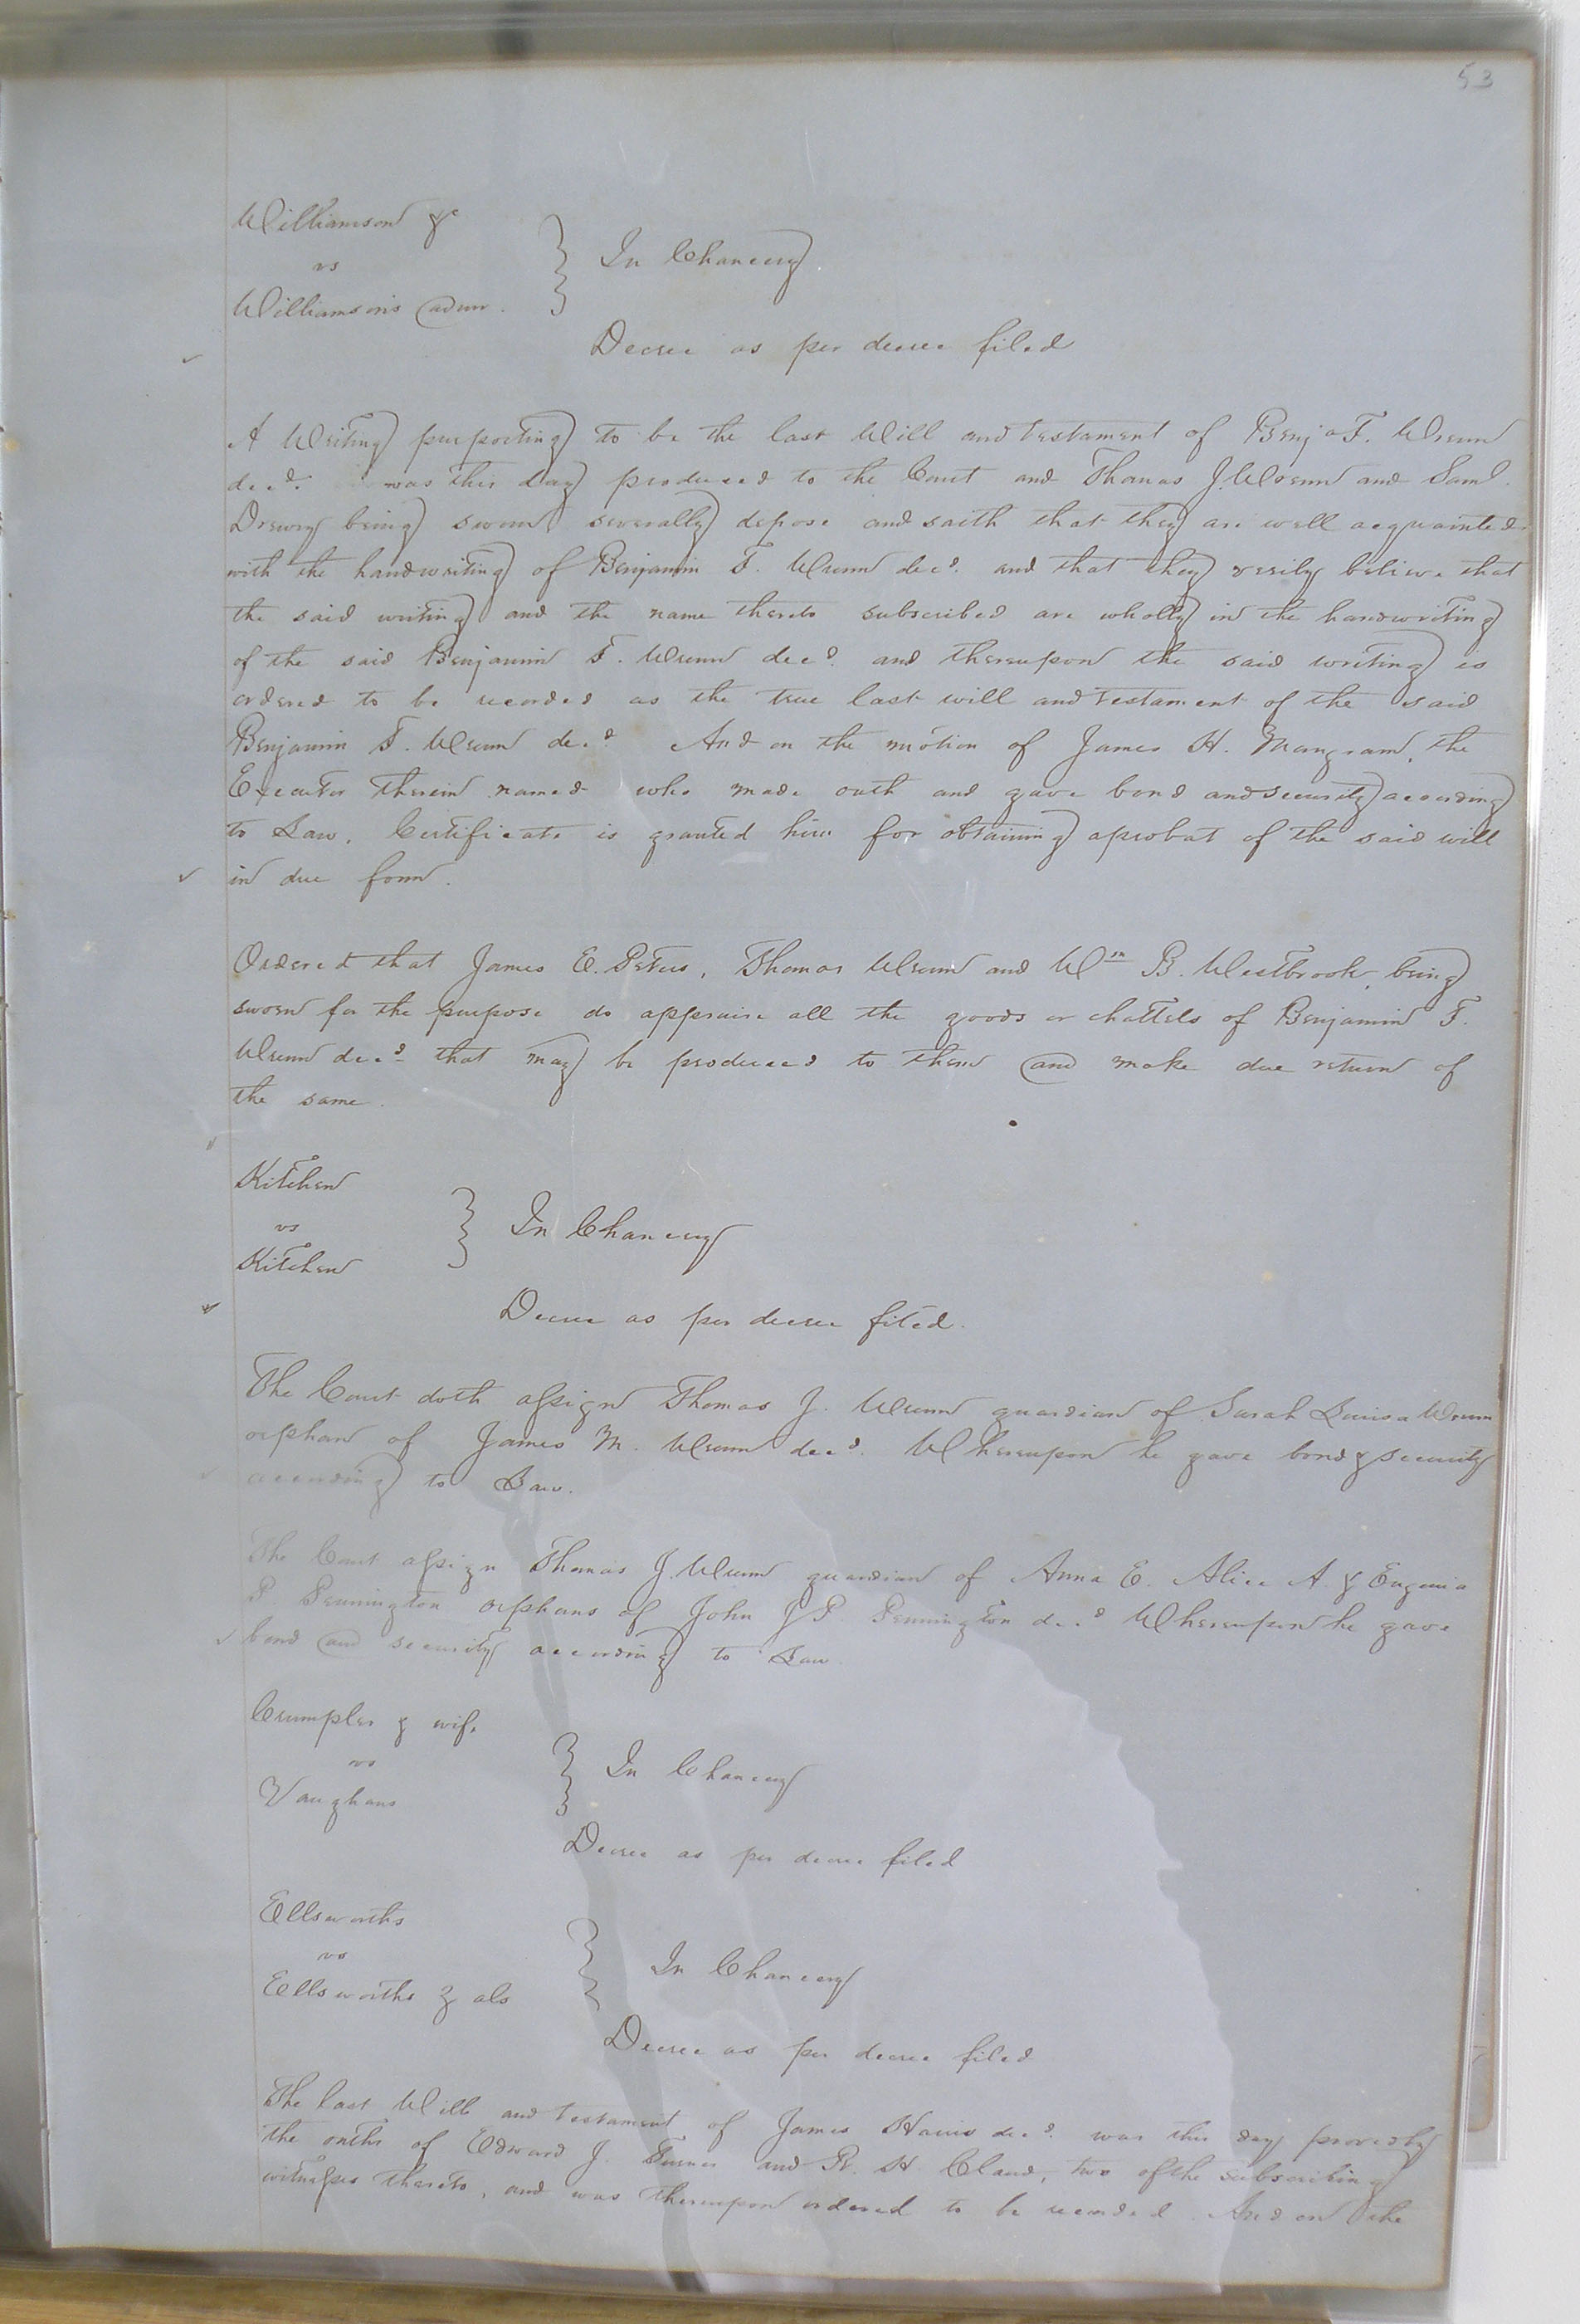 53
Williamson &c
vs
Williamson's admr.
In Chancery
Decree as per decree filed
A Writing purporting to be the last Will and Testament of Benja F. Wrenn
decd. was this day produced to the Court and Thomas J. Wrenn and Saml.
Drewry being sworn severally depose and saith that they are well acquainted
with the handwriting of Benjamin F. Wrenn decd. and that they verily believe that
the said writing and the name thereto subscribed are wholly in the handwriting
of the said Benjamin F. Wrenn decd. and thereupon the said writing is
ordered to be recorded as the true last will and testament of the said
Benjamin F. Wrenn decd. And on the motion of James H. Mangram, the
Executor therein named who made oath and gave bond and security according
to Law, Certificate is granted him for obtaining a probat of the said will
in due form.
Ordered that James E. Peters, Thomas Wrenn and Wm B. Westbrook, being
sworn for the purpose do appraise all the goods or chattels of Benjamin F.
Wrenn decd. that may be produced to them and make due return of
the same.
Kitchen
vs
Kitchen
In Chancery
Decree as per decree filed.
The Court doth assign Thomas J. Wrenn guardian of Sarah Louisa Wrenn
orphan of James M. Wrenn decd. Whereupon he gave bond & security
according to Law.
The Court assign Thomas J. Wrenn guardian of Anna E. Alice A & Eugenia
P. Pennington orphans of John J P. Pennington decd Whereupon he gave
bond and security according to Law.
Crumpler & wife
vs
Vaughans
In Chancery
Decree as per decree filed
Ellsworths
vs
Ellsworths & als
In Chancery
Decree as per decree filed
The last Will and testament of James Harris decd. was this day proved by
the oaths of Edward J. Turner and R. H. Claud, two of the subscribing
witnesses thereto, and was thereupon ordered to be recorded. And on the